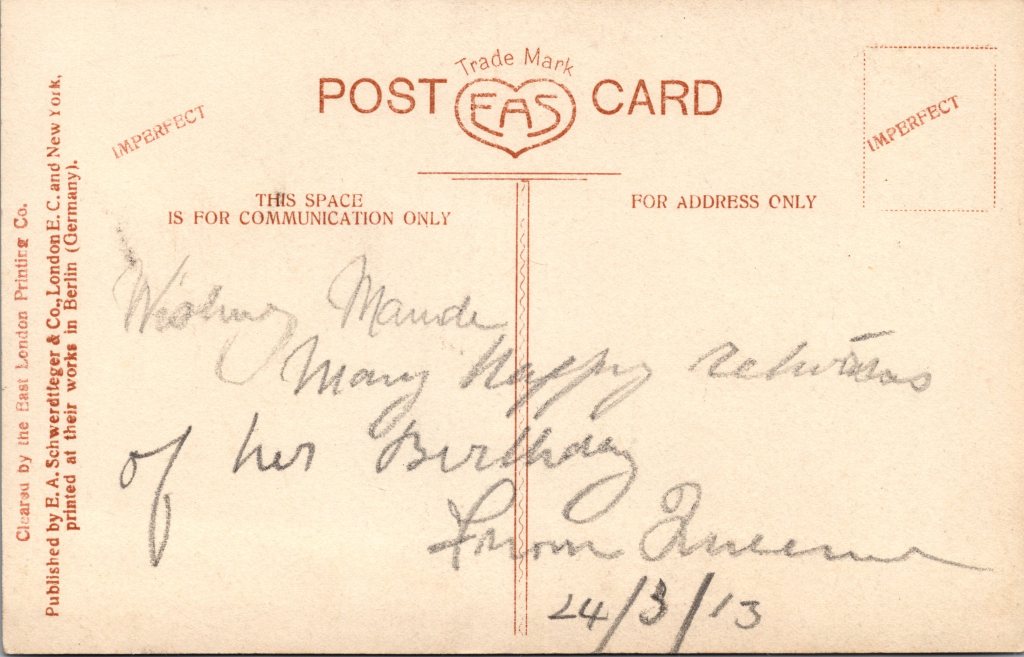 Trade Mark
POST EAS CARD
IMPERFECT
IMPERFECT
THIS SPACE
IS FOR COMMUNICATION ONLY
FOR ADDRESS ONLY
Cleared by the East London Printing Co.
Published by E. A. Schwerdtfeger & Co., London E. C. and New York,
printed at their works in Berlin (Germany).
Wishing Maude
Many Happy returns
of her Birthday
From
24/3/13